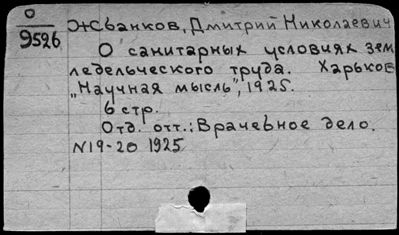 О
9526
Жбанков, Дмитрий Николаевич
О санитарных условиях зем
ледельческого труда. Харьков
„Научная мысль", 1925.
6 стр.
Отд. отт.: Врачебное дело.
N19-20 1925